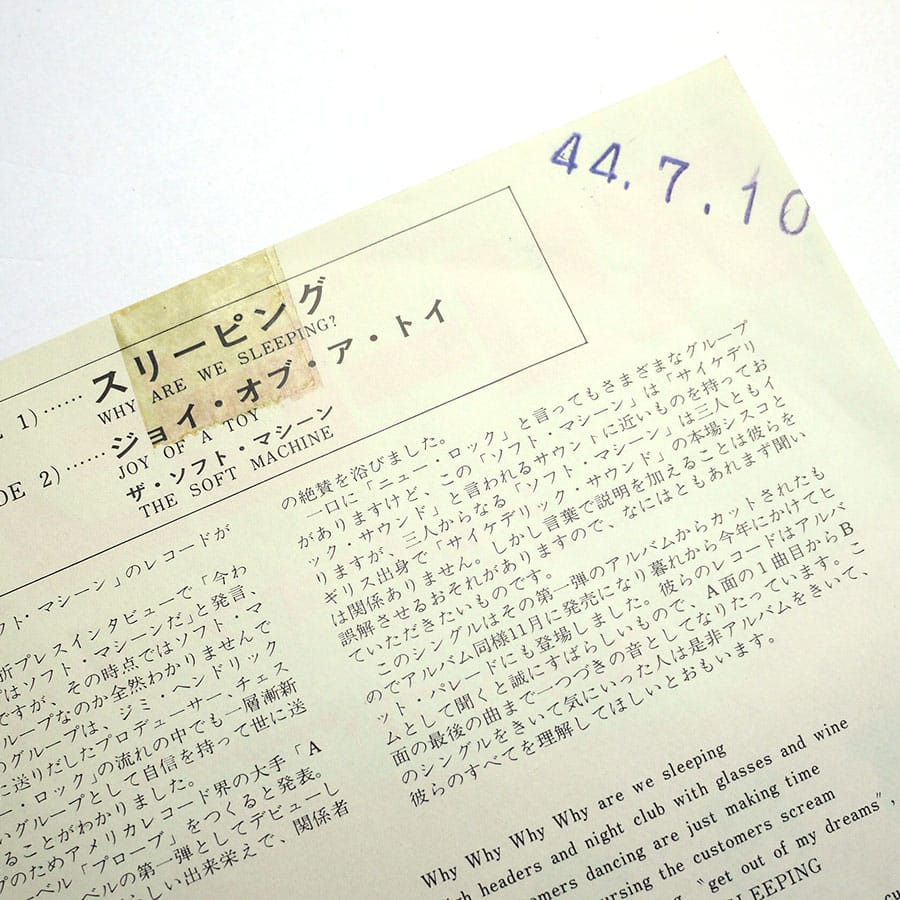 44.7.10
1)……スリーピング
WHY ARE WE SLEEPING?
DE 2)……ジョイ・オブ・ア・トイ
JOY OF A TOY
ザ・ソフト・マシーン
THE SOFT MACHINE
フト・マシーン」のレコードが
所プレスインタビューで「今わ
はソフト・マシーンだ」と発言、
ですが、その時点ではソフト・マ
ループなのか全然わかりませんで
のグループは、ジミ・ヘンドリック
に送りだしたプロデューサー、チェス
ー・ロック」の流れの中でも一層漸新
いグループとして自信を持って世に送
ることがわかりました。
プのためアメリカレコード界の大手「A
ーベル「プローブ」をつくると発表。
ベルの第一弾としてデビューし
しい出来栄えで、関係者
の絶賛を浴びました。
一口に「ニュー・ロック」と言ってもさまざまなグループ
がありますけど、この「ソフト・マシーン」は「サイケデリ
ック・サウンド」と言われるサウンドに近いものを持ってお
りますが、三人からなる「ソフト・マシーン」は三人ともイ
ギリス出身で「サイケデリック・サウンド」の本場シスコと
は関係ありません。しかし言葉で説明を加えることは彼らを
誤解させるおそれがありますので、なにはともあれまず聞い
ていただきたいものです。
このシングルはその第一弾のアルバムからカットされたも
のでアルバム同様11月に発売になり暮れから今年にかけてヒ
ット・パレードにも登場しました。彼らのレコードはアルバ
ムとして聞くと誠にすばらしいもので、A面の1曲目からB
面の最後の曲まで一つづきの音としてなりたっています。こ
のシングルをきいて気にいった人は是非アルバムをきいて、
彼らのすべてを理解してほしいとおもいます。
Why Why Why Why are we sleeping
headers and night club with glasses and wine
omers dancing are just making time
ursing the customers scream
"get out of my dreams",
LEEPING
cu